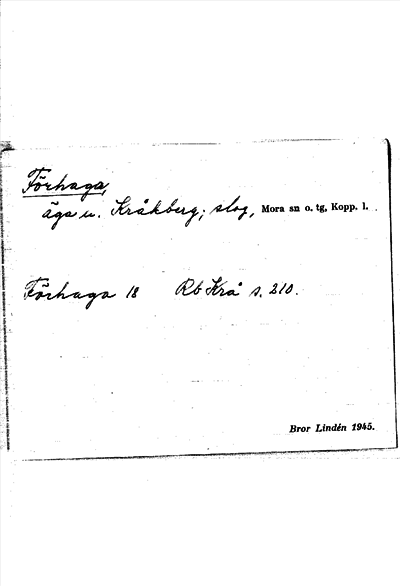 Förhaga,
ägs u. Kråkberg; slog, Mora sn o. tg, Kopp. l.
Förhaga 18 Rb Krå s. 210.
Bror Lindén 1945.